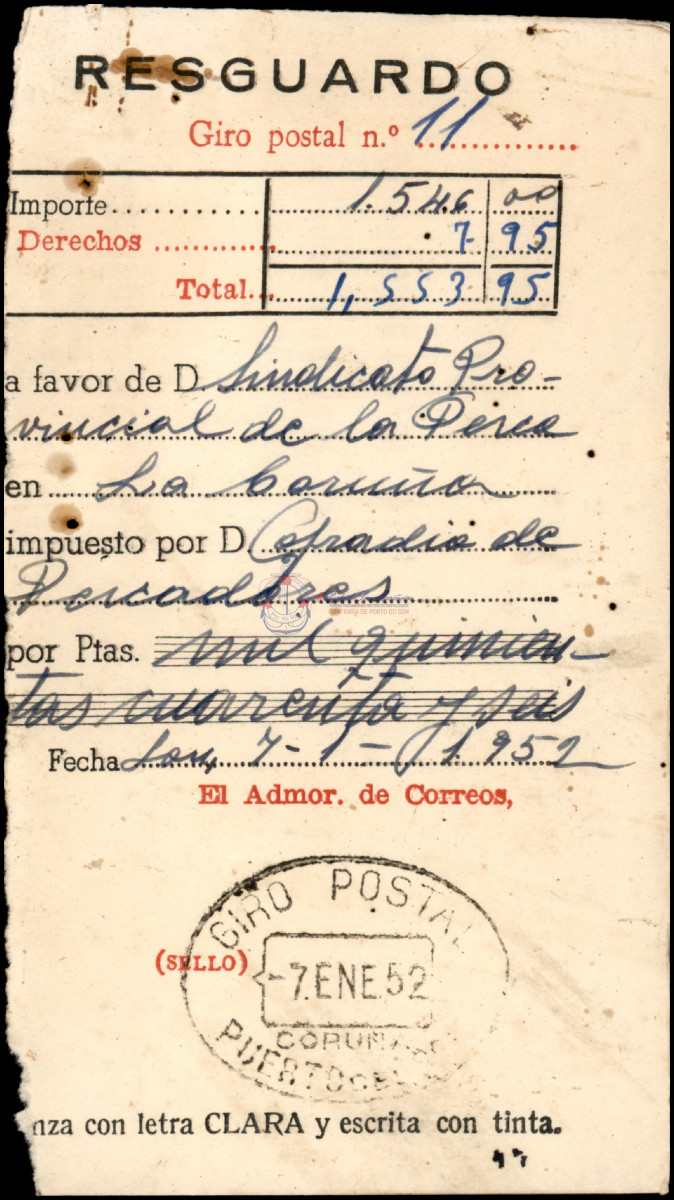 RESGUARDO
Giro postal n.º 11
Importe 1.546 00
Derechos 7- 95
Total 1,553 95
a favor de D Sindicato Pro-
vincial de la Pesca
en La Coruña
impuesto por D. Cofradia de
Pescadores
COFRARÍA DE PORTO DO SON
por Ptas. mil quinien-
tas cuarenta y seis
Fecha Son, 7-1-1952
El Admor. de Correos,
GIRO POSTAL
(SELLO)
-7.ENE.52
CORUÑA
PUERTO
nza con letra CLARA y escrita con tinta.